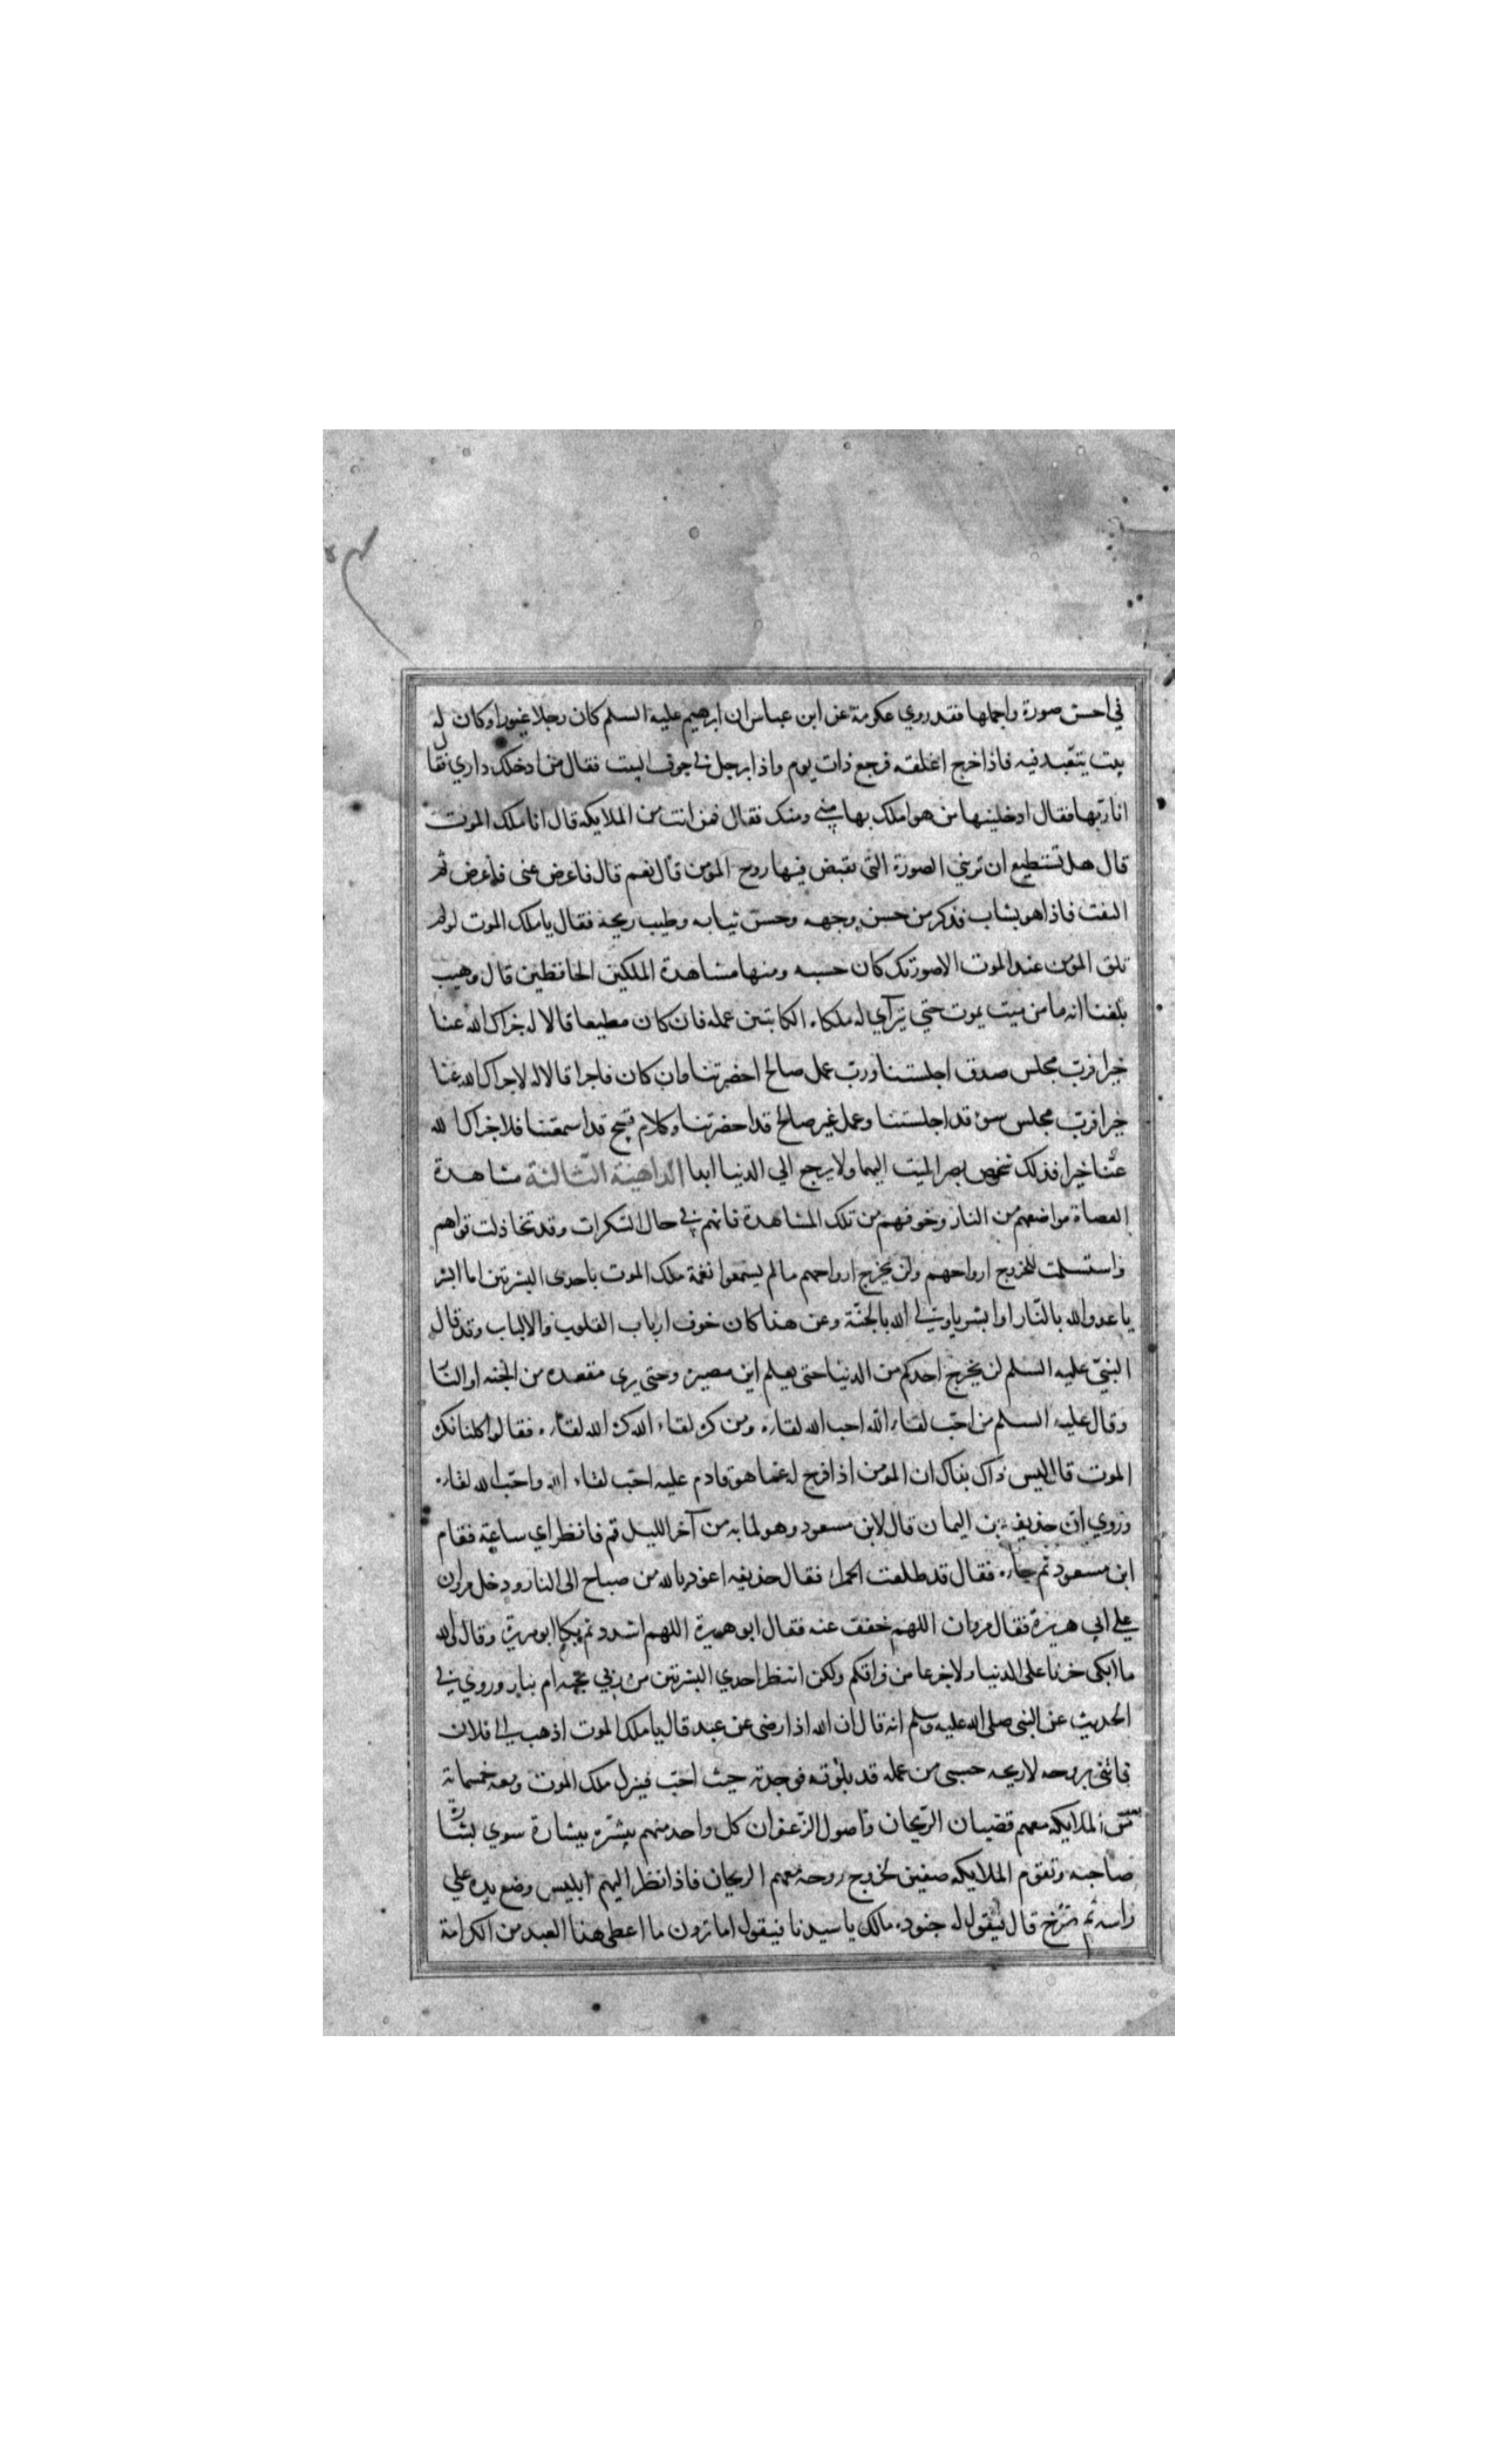 في احسن صورة واجملها فقد روي عكرمة عن ابن عباس ان ابرهيم عليه السلم كان رجلا غيورا وكان له
بيت يتعبد فيه فاذا خرج اغلقه فرجع ذات يوم واذا برجل في جوف البيت فقال من ادخلك داري فقال
انا ربها فقال ادخلنيها من هو املك بها مني ومنك فقال فمن انت من الملايكه قال انا ملك الموت
قال هل تستطيع ان تريني الصورة التي تقبض فيها روح المؤمن قال نعم قال فاعرض عنى فاعرض ثم
التفت فاذا هو بشاب فذكر من حسن وجهه وحسن ثيابه وطيب ريحه فقال يا ملك الموت لو لم
تلق المؤمن عند الموت الا صورتك كان حسبه ومنها مشاهدة الملكين الحافظين قال وهيب
بلغنا انه ما من ميت يموت حتي يترآي له ملكاه الكاتبين عمله فان كان مطيعا قالا له جزاك الله عنا
خيرا فرب مجلس صدق اجلستنا ورب عمل صالح احضرتنا وان كان فاجرا قالا له لا جزاك الله عنا
خيرا فرب مجلس سوء قد اجلستنا وعمل غير صالح قد احضرتنا وكلام قبيح قد اسمعتنا فلا جزاك الله
عنا خيرا فذلك شخوص بصر الميت اليهما ولا يرجع الي الدنيا ابدا الداهية الثالثة مشاهدة
العصاة مواضعهم من النار وخوفهم من تلك المشاهدة فانهم في حال السكرات وقد تخاذلت قواهم
واستسلمت للخروج ارواحهم ولن يخرج ارواحهم ما لم يسمعوا نغمة ملك الموت باحدى البشرتين اما ابشر
يا عدو الله بالنار او ابشر يا ولي الله بالجنة وعن هذا كان خوف ارباب القلوب والالباب وقد قال
النبي عليه السلم لن يخرج احدكم من الدنيا حتى يعلم اين مصيره وحتى يرى مقعده من الجنه او النا
وقال عليه السلم من احب لقاء الله احب الله لقاءه ومن كره لقاء الله كره الله لقاءه فقالوا كلنا نكره
الموت قال ليس ذاك بذاك ان المؤمن اذا فرج له عما هو قادم عليه احب لقاء الله واحب الله لقاءه
وروي ان حذيفه بن اليمان قال لابن مسعود وهو لما به من آخر الليل قم فانظر اي ساعة فقام
ابن مسعود ثم جاءه فقال قد طلعت الحمراء فقال حذيفه اعوذ بالله من صباح الى النار ودخل مروان
علي ابي هريرة فقال مروان اللهم خفف عنه فقال ابو هريرة اللهم اشدد ثم بكا ابو هريرة وقال والله
ما ابكى حزنا على الدنيا ولا جزعا من فراقكم ولكن انتظر احدي البشرتين من ربي بجنة ام بنار وروي في
الحديث عن النبي صلى الله عليه وسلم انه قال ان الله اذا رضى عن عبد قال يا ملك الموت اذهب الي فلان
فاتني بروحه لاريحه حسبي من عمله قد بلوته فوجدته حيث احب فينزل ملك الموت ومعه خمسماية
من الملايكه معهم قضبان الريحان واصول الزعفران كل واحد منهم يبشره ببشارة سوي بشارة
صاحبه وتقوم الملايكه صفين لخروج روحه معهم الريحان فاذا نظر اليهم ابليس وضع يده علي
راسه ثم صرخ قال فيقول له جنوده مالك يا سيدنا فيقول اما ترون ما اعطى هذا العبد من الكرامة